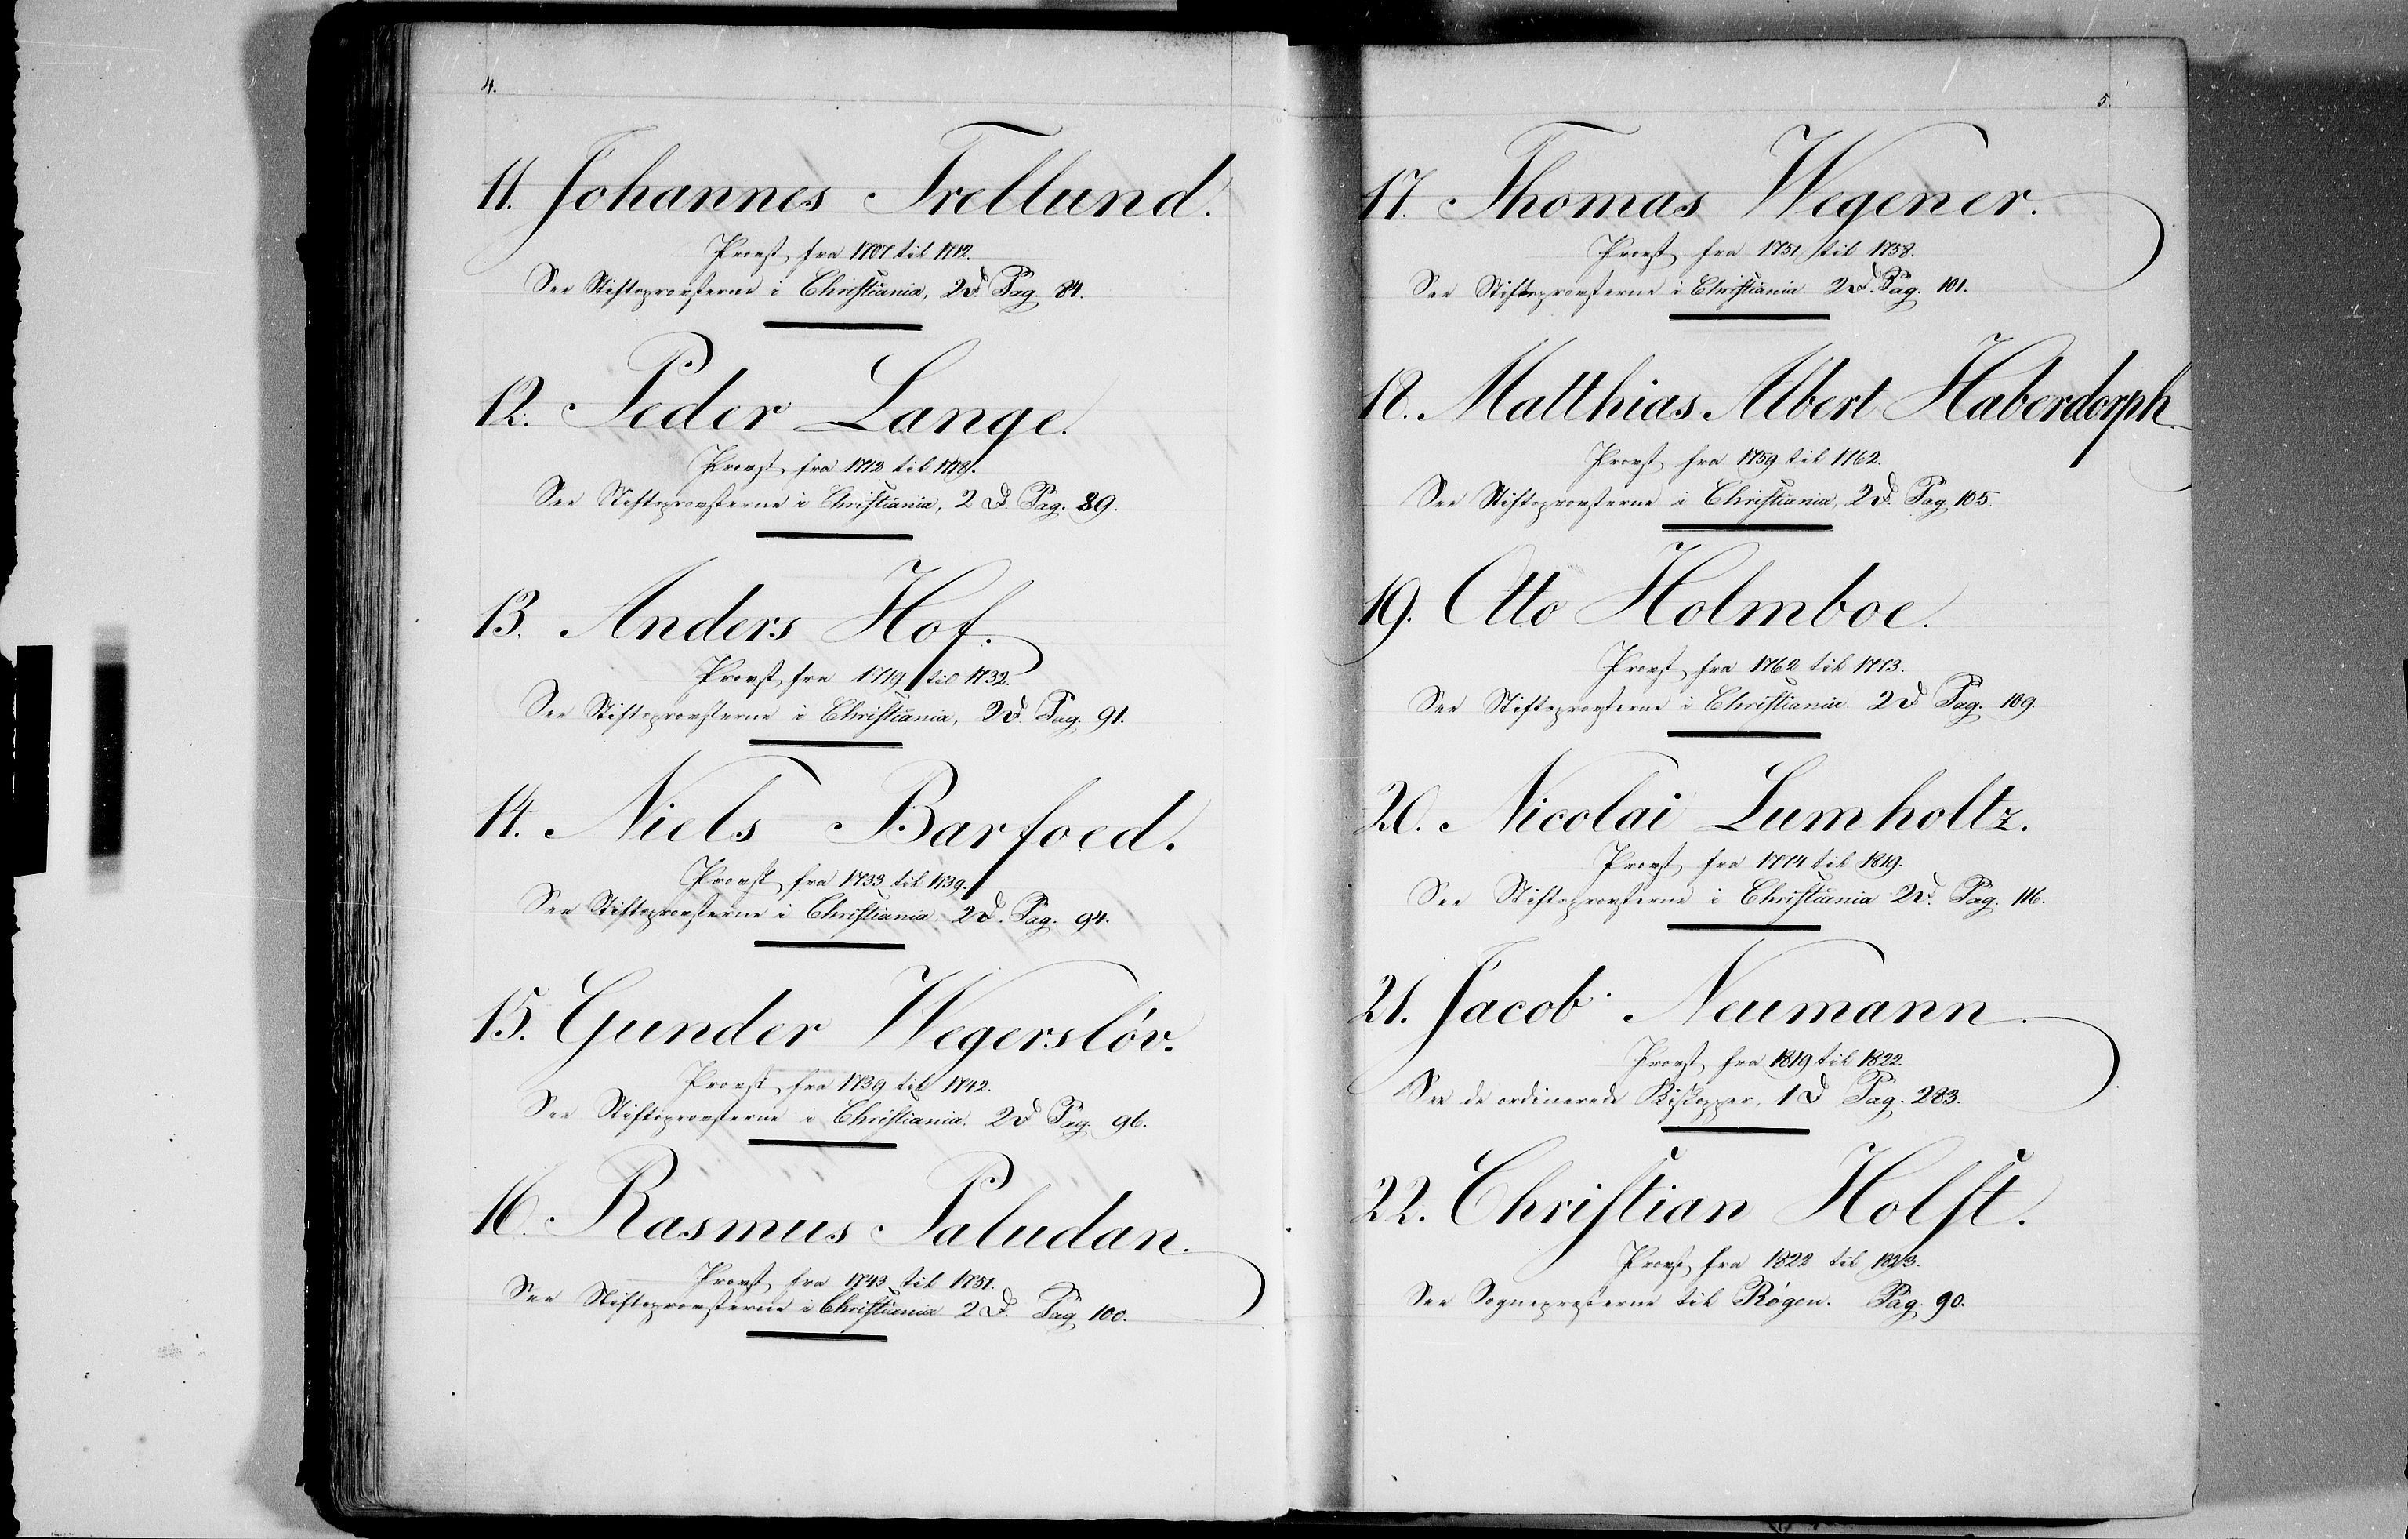 4.
11. Johannes Trellund.
Provst fra 1707 til 1712.
See Stiftsprovsterne i Christiania, 2 D. Pag. 84.
12. Peder Lange.
Provst fra 1712 til 1718.
See Stiftsprovsterne i Christiania, 2 D. Pag. 89.
13. Anders Hof.
Provst fra 1719 til 1732.
See Stiftsprovsterne i Christiania, 2 D. Pag. 91.
14. Niels Barfoed.
Provst fra 1733 til 1739.
See Stiftsprovsterne i Christiania. 2 D. Pag. 94.
15. Gunder Wegersløv.
Provst fra 1739 til 1742.
See Stiftsprovsterne i Christiania. 2 D Pag. 96.
16. Rasmus Paludan.
Provst fra 1743 til 1751.
See Stiftsprovsterne i Christiania 2 D. Pag. 100.
5.
17. Thomas Wegener.
Provst fra 1751 til 1758.
See Stiftsprovsterne i Christiania. 2 D. Pag. 101.
18. Matthias Albert Haberdorph.
Provst fra 1759 til 1762.
See Stiftsprovsterne i Christiania, 2 D. Pag. 105.
19. Otto Holmboe.
Provst fra 1762 til 1773.
See Stiftsprovsterne i Christiania. 2 D Pag. 109.
20. Nicolai Lumholtz.
Provst fra 1774 til 1819.
See Stiftsprovsterne i Christiania 2 D. Pag. 116.
21. Jacob Neumann.
Provst fra 1819 til 1822.
See de ordinerede Biskopper, 1 D Pag. 283.
22. Christian Holst.
Provst fra 1822 til 1823.
See Sognepræsterne til Røgen. Pag. 90.